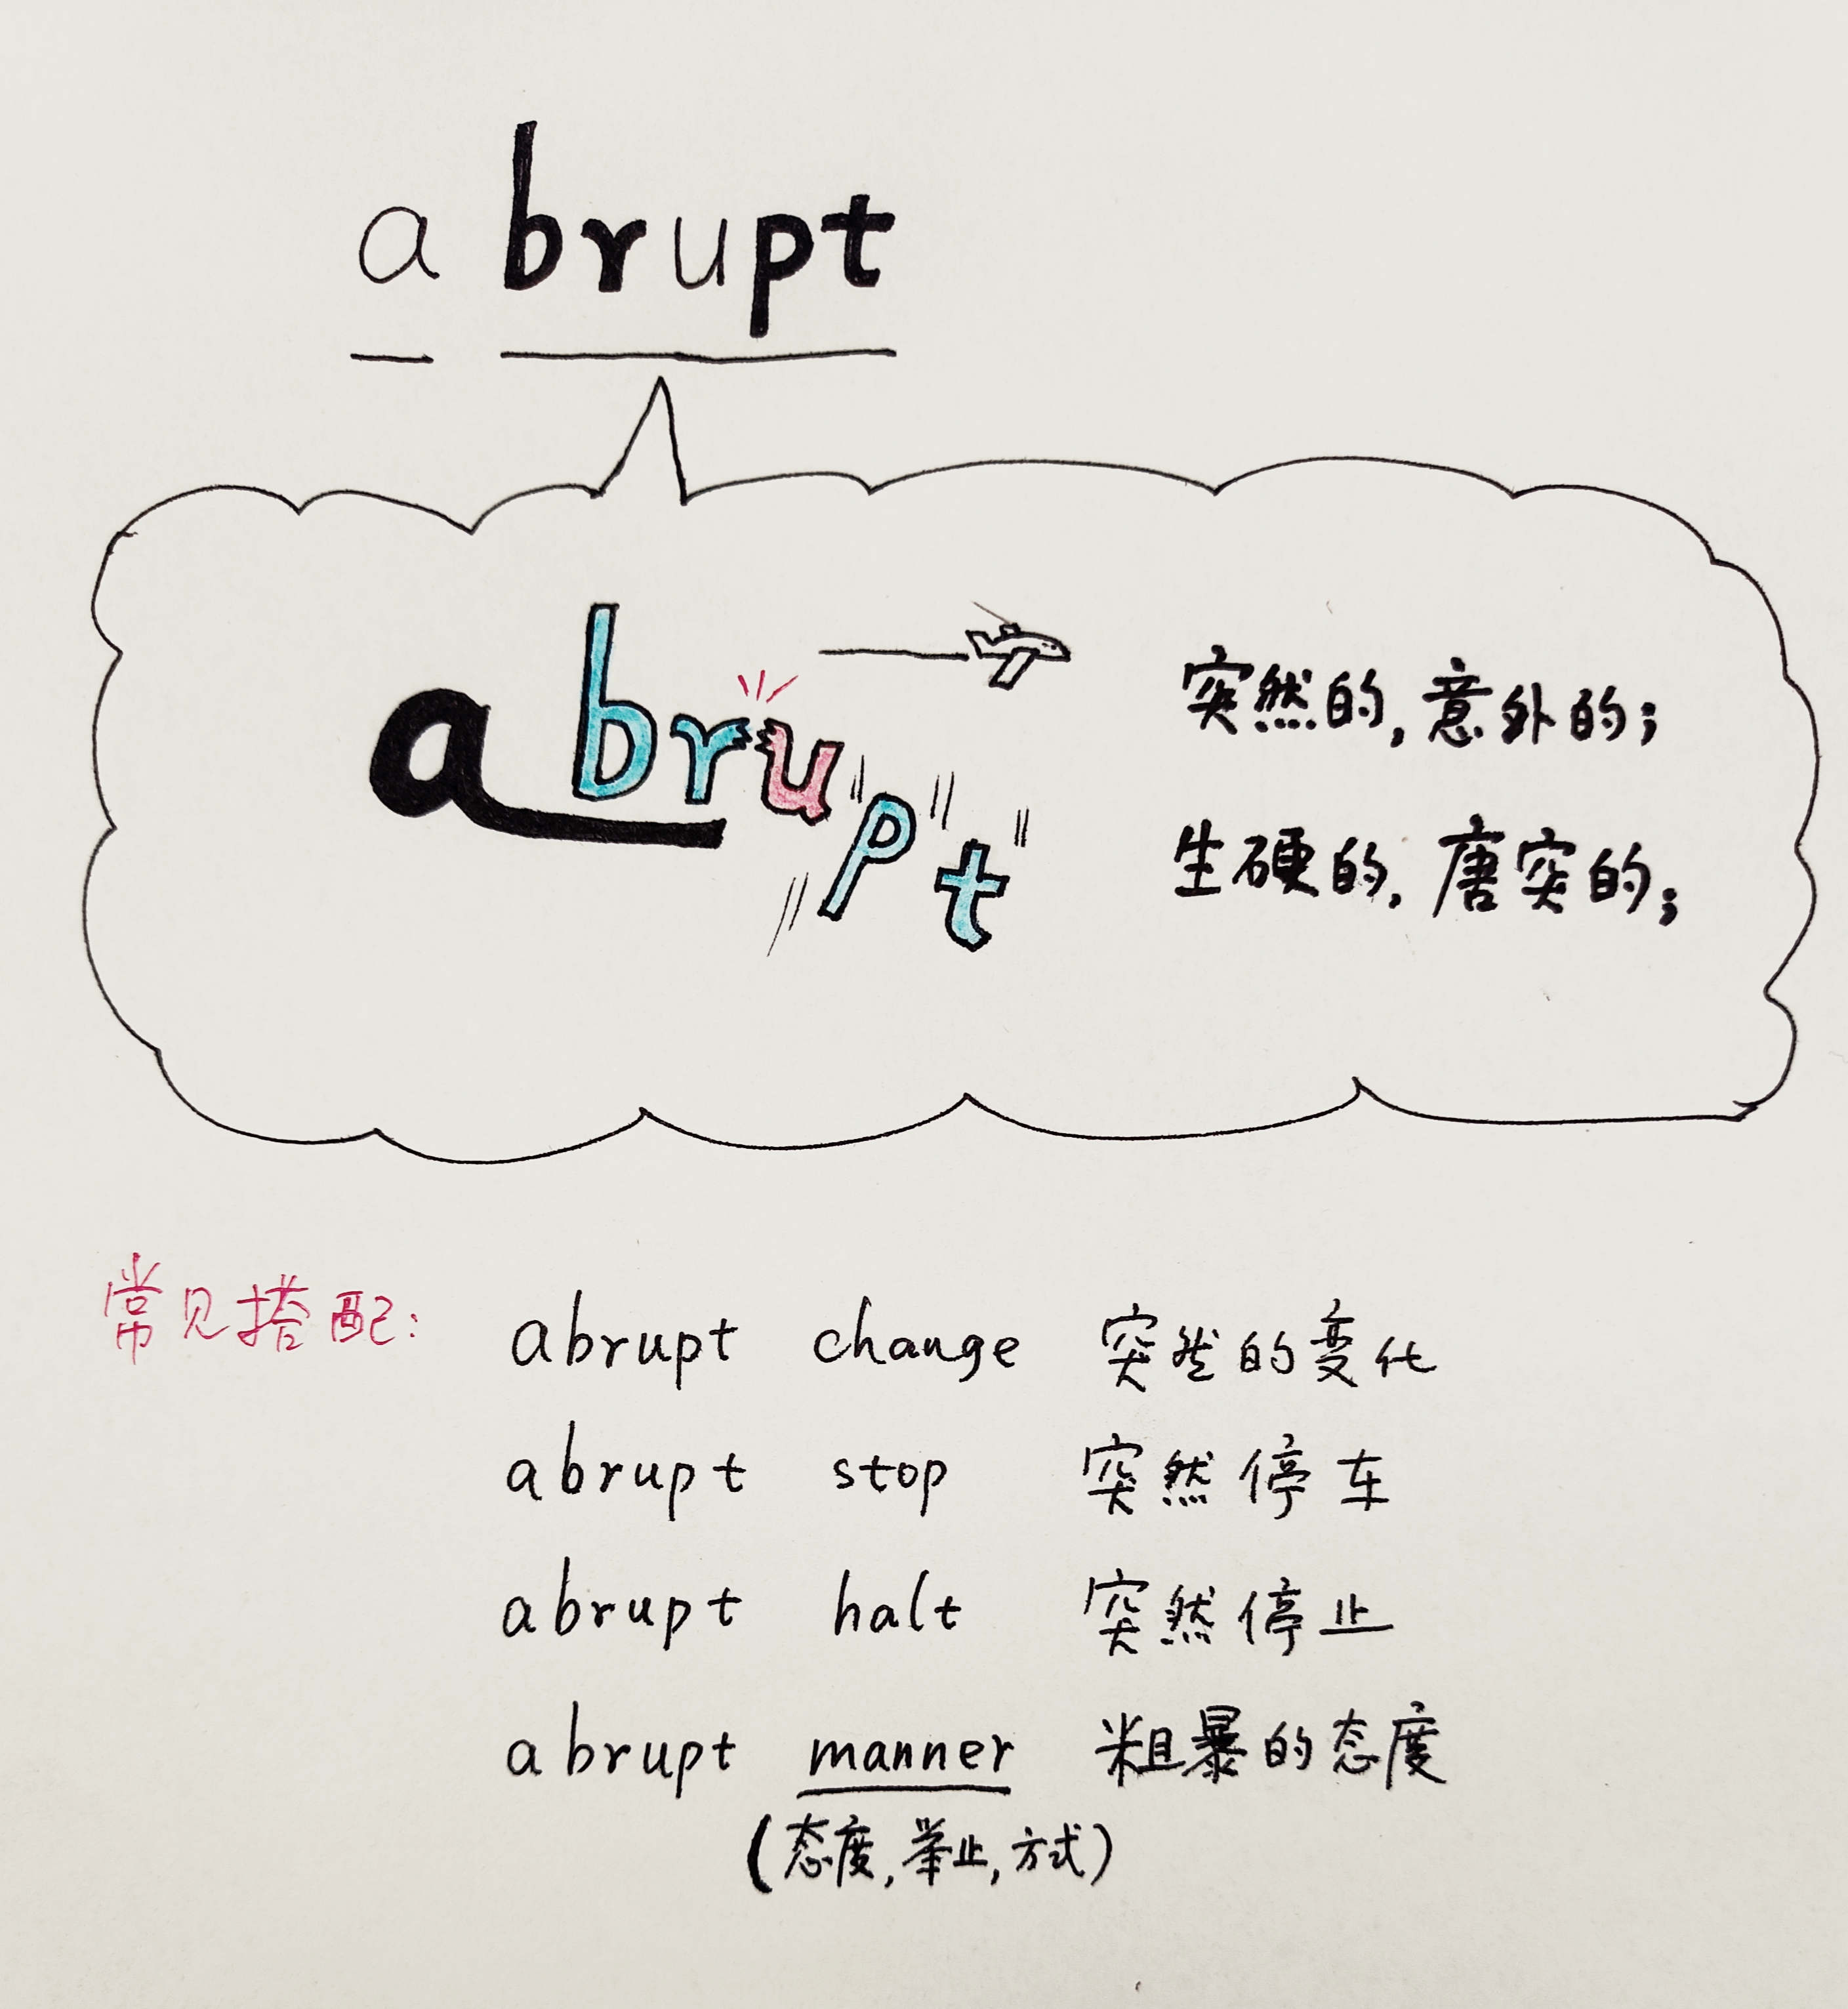 a brupt
abrupt
突然的,意外的;
生硬的,唐突的;
常见搭配: abrupt change 突然的变化
abrupt stop 突然停车
abrupt halt 突然停止
abrupt manner 粗暴的态度
(态度,举止,方式)